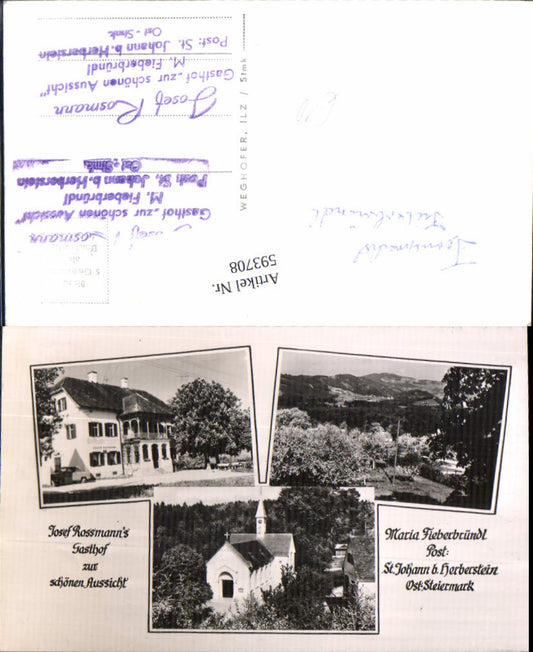 Josef Rosmann
Gasthof „zur schönen Aussicht“
M. Fieberbründl
Post: St. Johann b. Herberstein
Ost-Stmk.
Gasthof „zur schönen Aussicht“
M. Fieberbründl
Post: St. Johann b. Herberstein
Ost-Stmk.
WEGHOFER, ILZ / Stmk
Fieberbründl
Artikel Nr.
593708
Josef Rossmann's
Gasthof
zur
schönen Aussicht
Maria Fieberbründl
Post:
St. Johann b. Herberstein
Ost-Steiermark